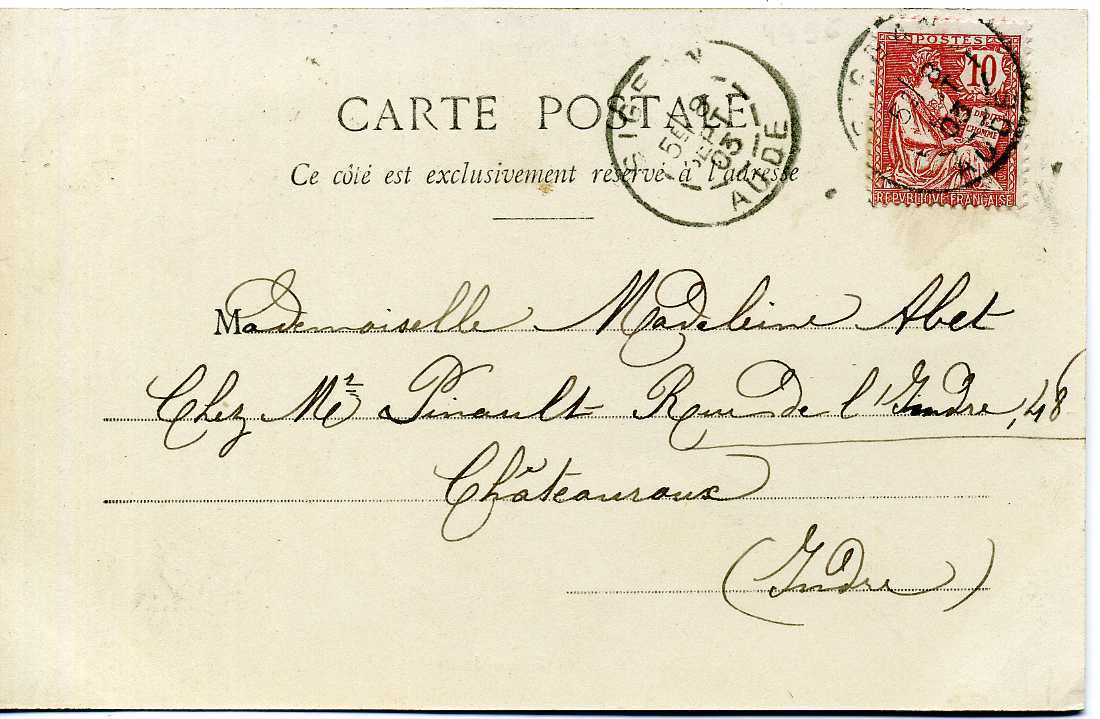 POSTES
10
DROITS
DE
L'HOMME
REPVBLIQVE FRANÇAISE
SIGEAN
5E / 8
SEPT
03
AUDE
CARTE POSTALE
Ce côté est exclusivement réservé à l'adresse
Mademoiselle Madeleine Abet
Chez Mr Pinault Rue de l'Indre, 48
Châteauroux
(Indre)